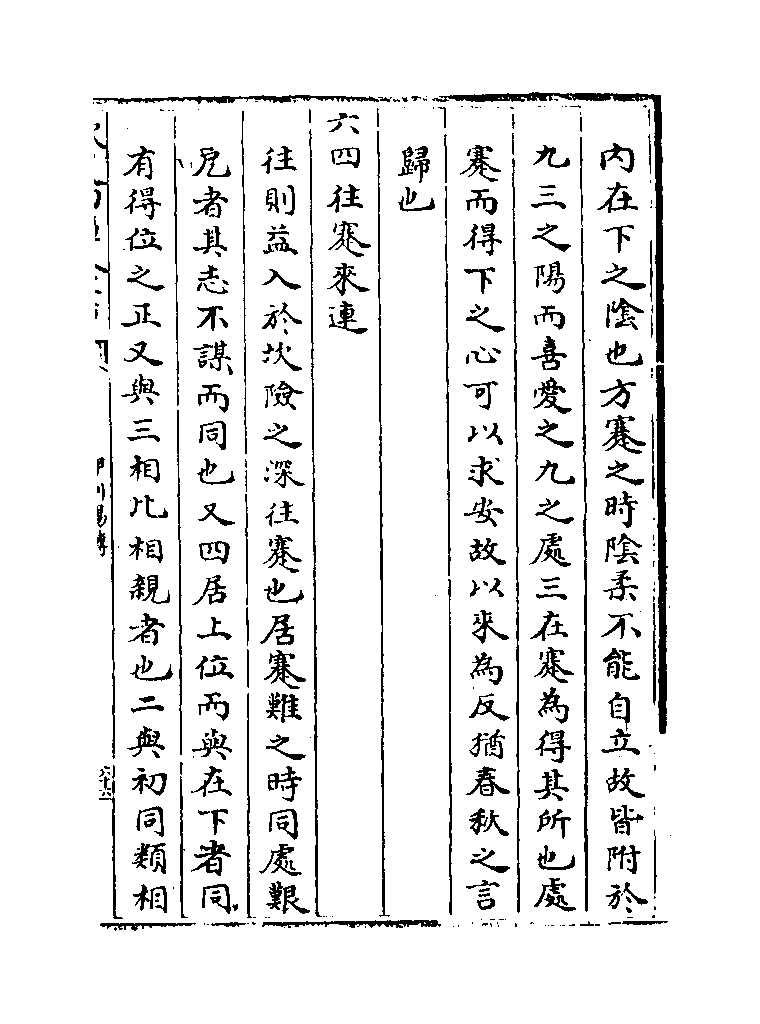 內在下之陰也方蹇之時陰柔不能自立故皆附於
九三之陽而喜愛之九之處三在蹇為得其所也處
蹇而得下之心可以求安故以來為反猶春秋之言
歸也
六四往蹇來連
往則益入於坎險之深往蹇也居蹇難之時同處艱
戹者其志不謀而同也又四居上位而與在下者同
有得位之正又與三相比相親者也二與初同類相